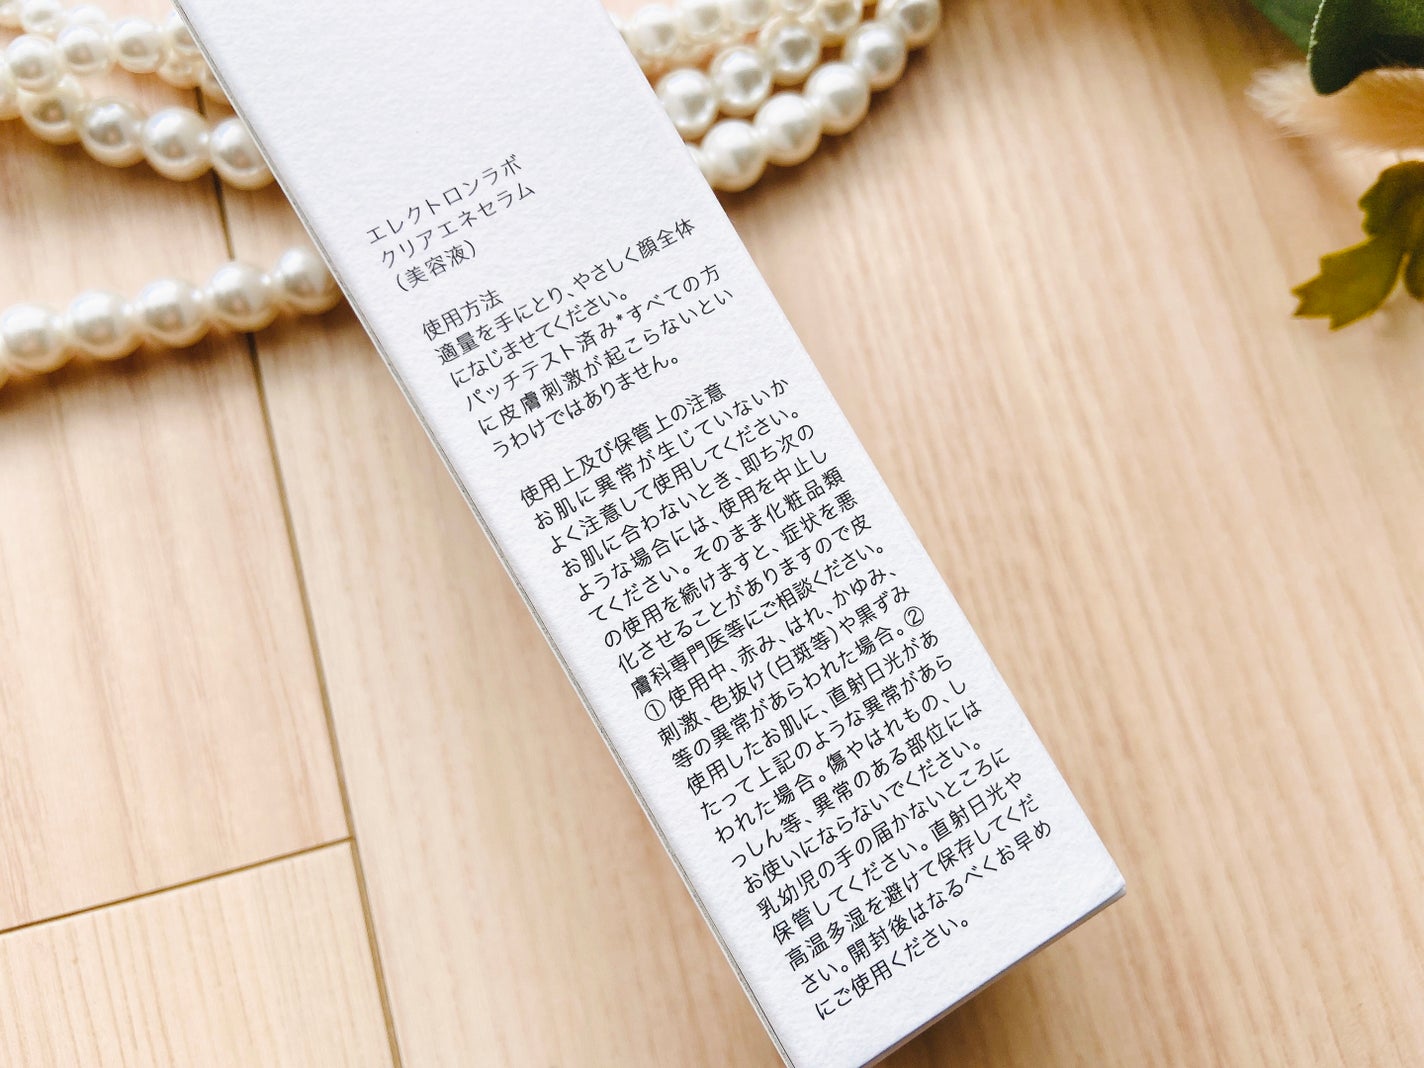 エレクトロンラボ
クリアエネセラム
（美容液）
使用方法
適量を手にとり、やさしく顔全体
になじませてください。
パッチテスト済み*すべての方
に皮膚刺激が起こらないとい
うわけではありません。
使用上及び保管上の注意
お肌に異常が生じていないか
よく注意して使用してください。
お肌に合わないとき、即ち次の
ような場合には、使用を中止し
てください。そのまま化粧品類
の使用を続けますと、症状を悪
化させることがありますので皮
膚科専門医等にご相談ください。
①使用中、赤み、はれ、かゆみ、
刺激、色抜け(白斑等)や黒ずみ
等の異常があらわれた場合。②
使用したお肌に、直射日光があ
たって上記のような異常があら
われた場合。傷やはれもの、し
っしん等、異常のある部位には
お使いにならないでください。
乳幼児の手の届かないところに
保管してください。直射日光や
高温多湿を避けて保存してくだ
さい。開封後はなるべくお早め
にご使用ください。